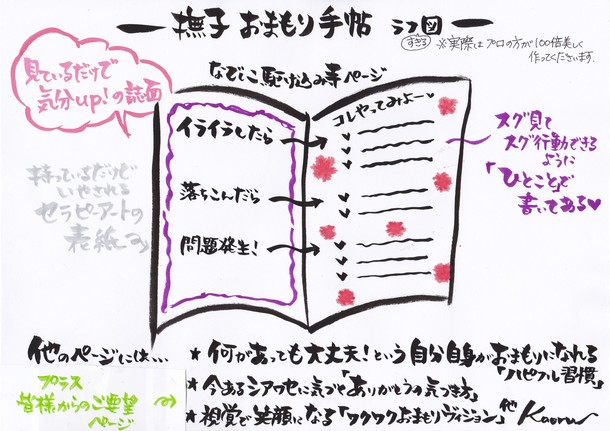 撫子 おまもり手帖 ラフ図
すぎる
※実際はプロの方が100倍美しく
作ってくださいます。
なでしこ駆け込み寺ページ
見ているだけで
気分up!の誌面
コレやってみよー♥
イライラしたら
落ちこんだら
問題発生!
スグ見て
スグ行動できる
ように
「ひとこと」で
書いてある♥
持っているだけで
いやされる
セラピーアートの
表紙
他のページには…
★何があっても大丈夫!という自分自身がおまもりになれる
「ハピフル習慣」
★今あるシアワセに気づく「ありがとうの気づき方」
★視覚で笑顔になる「ワクワクおまもりヴィジョン」他
Kaoru
プラス
皆様からのご要望
ページ